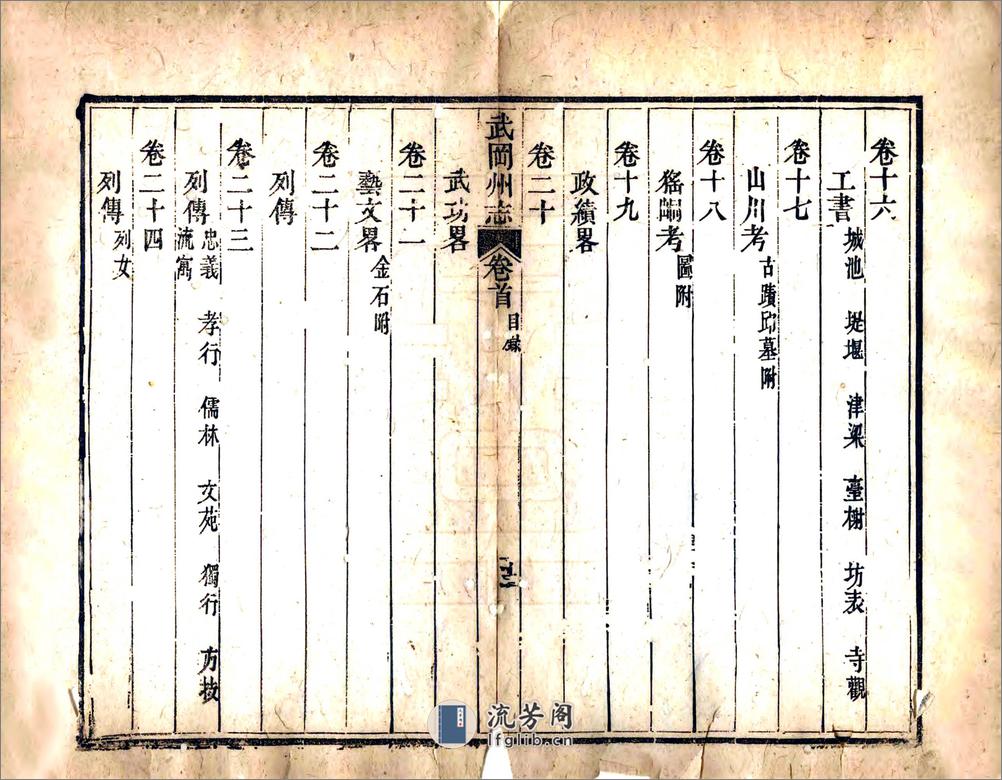 卷十六
工書 城池 堤堰 津梁 臺榭 坊表 寺觀
卷十七
山川考 古蹟邱墓附
卷十八
猺峒考 圖附
卷十九
政績畧
卷二十
武岡州志 卷首 目錄
武功畧
卷二十一
藝文畧 金石附
卷二十二
列傳
卷二十三
列傳 忠義 孝行 儒林 文苑 獨行 方技
流寓
卷二十四
列傳 列女
流芳阁
lfglib.cn